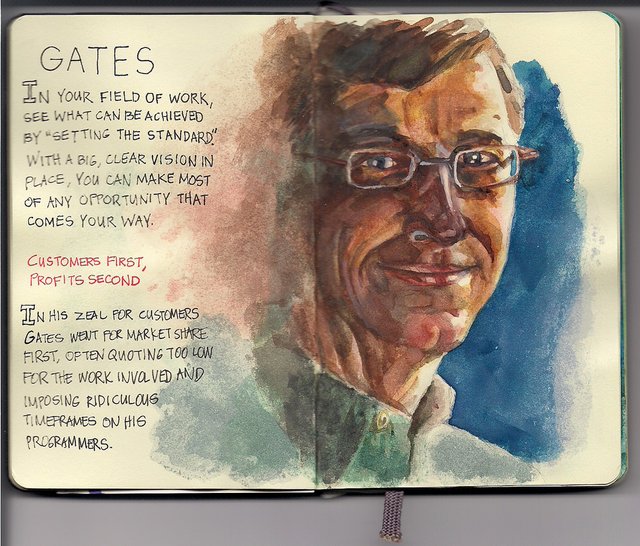 GATES
IN YOUR FIELD OF WORK,
SEE WHAT CAN BE ACHIEVED
BY "SETTING THE STANDARD."
WITH A BIG, CLEAR VISION IN
PLACE, YOU CAN MAKE MOST
OF ANY OPPORTUNITY THAT
COMES YOUR WAY.
CUSTOMERS FIRST,
PROFITS SECOND
IN HIS ZEAL FOR CUSTOMERS
GATES WENT FOR MARKET SHARE
FIRST, OFTEN QUOTING TOO LOW
FOR THE WORK INVOLVED AND
IMPOSING RIDICULOUS
TIMEFRAMES ON HIS
PROGRAMMERS.